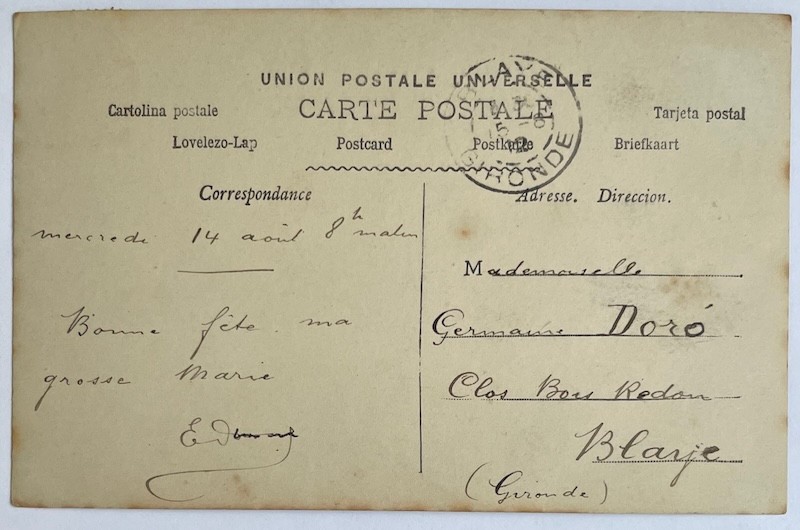 UNION POSTALE UNIVERSELLE
CARTE POSTALE
Cartolina postale
Tarjeta postal
Lovelezo-Lap
Postcard
Postkarte
Briefkaart
GIRONDE
Correspondance
Adresse. Direccion.
mercredi 14 août 8h matin
Bonne fête ma
grosse Marie
Edmond
Mademoiselle
Germaine Doré
Clos Bois Redon
Blaye
(Gironde)